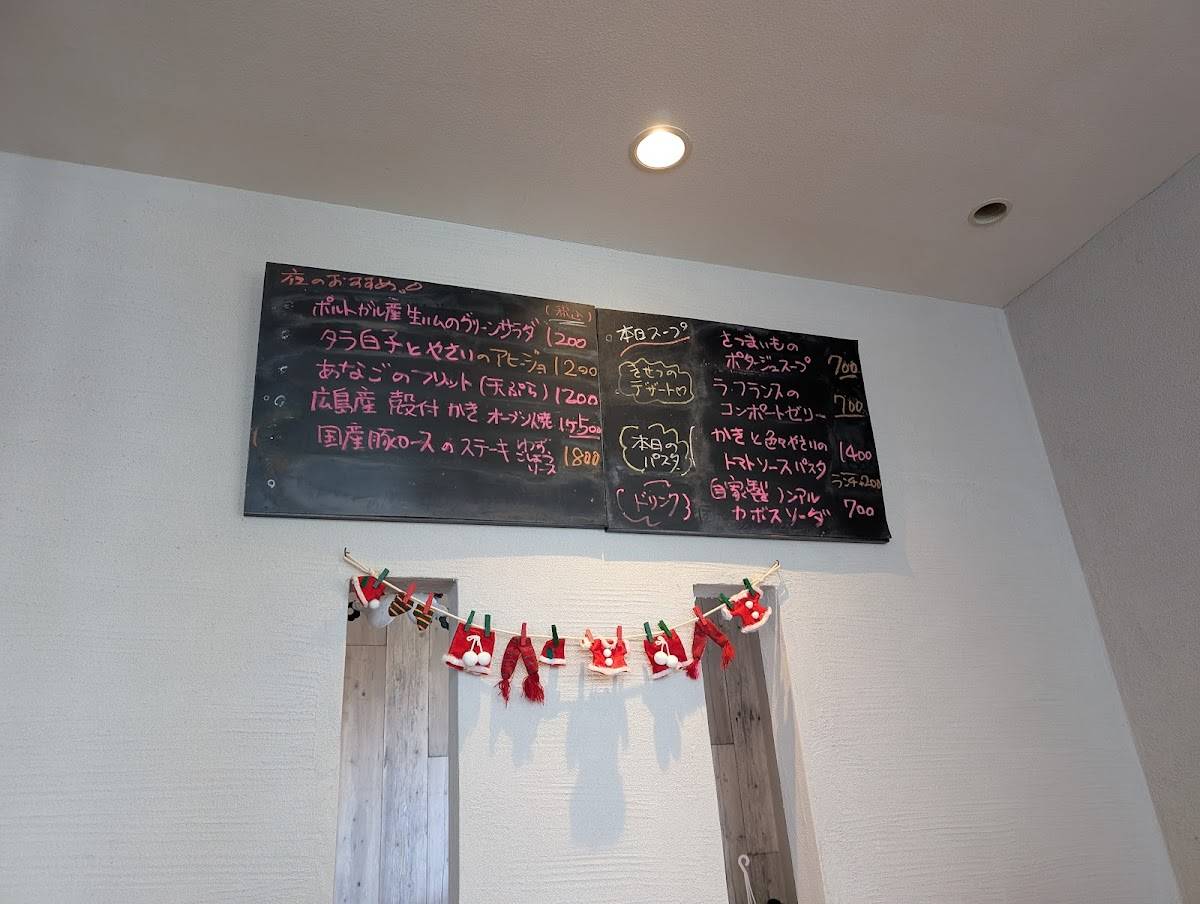 夜のおすすめ
(税込)
ポルトガル産生ハムのグリーンサラダ 1200
タラ白子とやさいのアヒージョ 1200
あなごのフリット(天ぷら) 1200
広島産 殻付 かき オーブン焼 1ケ500
国産豚ロースのステーキ ゆず
ごしょう
ソース 1800
本日スープ さつまいもの
ポタージュスープ 700
きせつの
デザート♡ ラ・フランスの
コンポートゼリー 700
本日の
パスタ かきと色々やさいの
トマトソースパスタ 1400
ランチ+200
ドリンク 自家製ノンアル
カボスソーダ 700